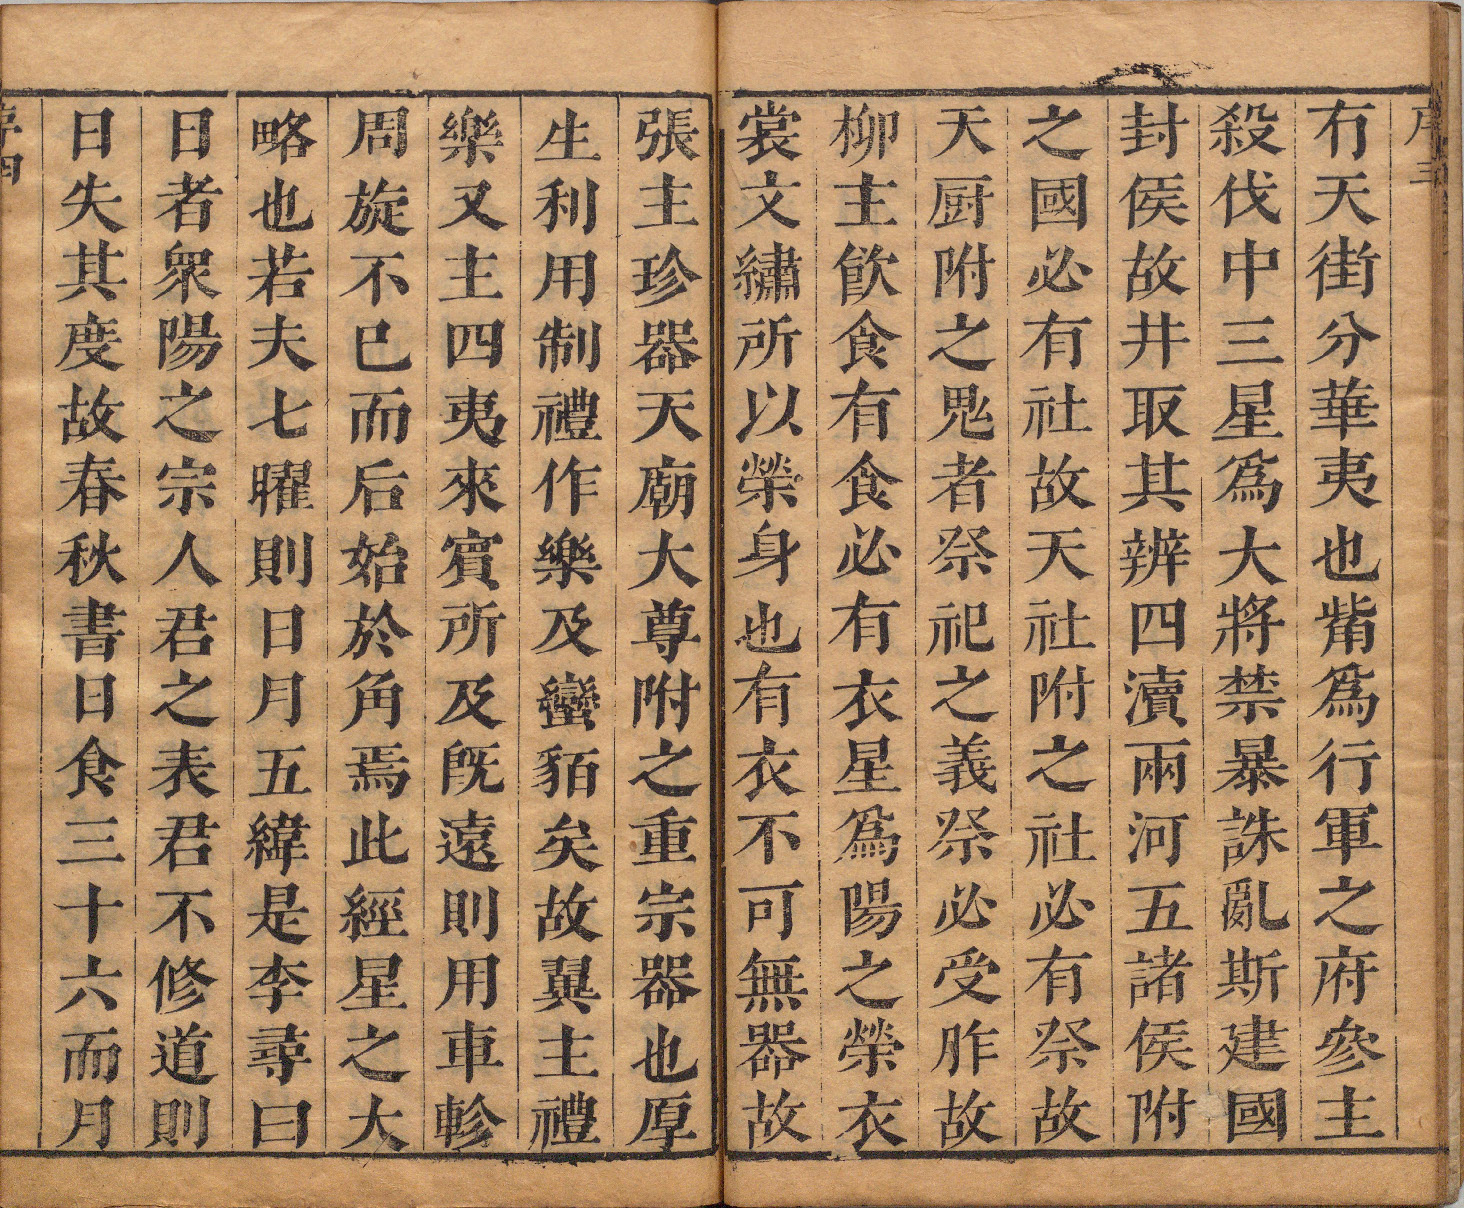 序三
冇天街分華夷也觜爲行軍之府參主
殺伐中三星爲大將禁暴誅亂斯建國
封侯故井取其辨四瀆兩河五諸侯附
之國必有社故天社附之社必有祭故
天厨附之鬼者祭祀之義祭必受胙故
柳主飲食有食必有衣星爲陽之榮衣
裳文繡所以榮身也有衣不可無器故
張主珍器天廟大尊附之重宗器也厚
生利用制禮作樂及蠻貊矣故翼主禮
樂又主四夷來賓所及旣遠則用車軫
周旋不已而后始於角焉此經星之大
略也若夫七曜則日月五緯是李尋曰
日者衆陽之宗人君之表君不修道則
日失其度故春秋書日食三十六而月
序四